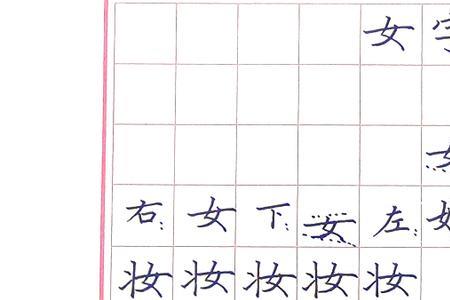 女字
右:女下:女左:
妆妆妆妆妆